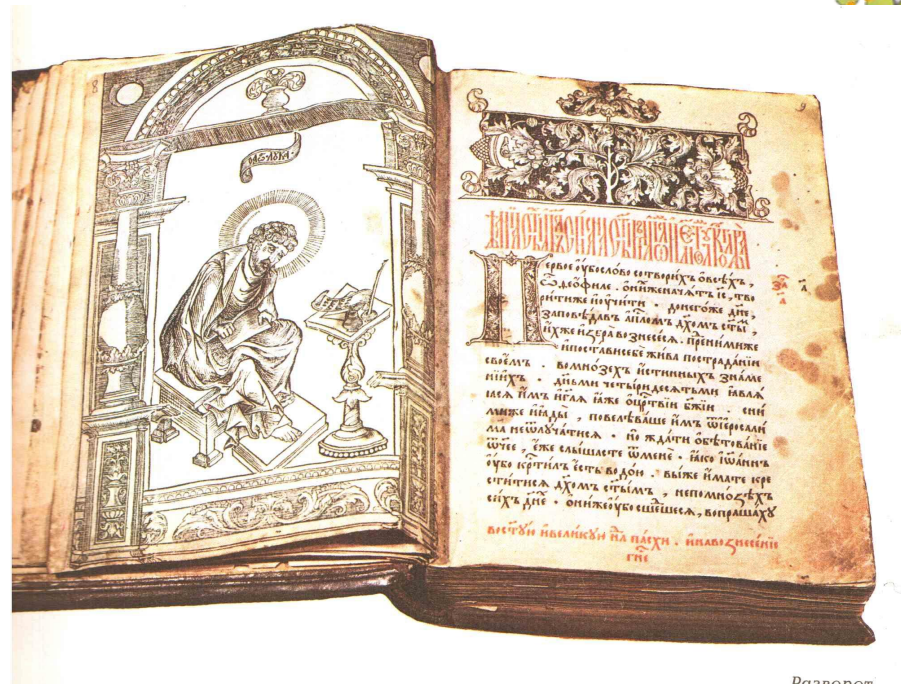 8
9
Первое ѹ҆бо сло́во сотвори́хъ ѡ҆ всѣ́хъ,
ѽ део҆́филе . ѡ҆ ни́хже нача́тъ і҆с, тво
ри́ти же и҆ ѹ҆чи́ти до него́же дн҃е,
заповѣ́давъ а҆п҃ломъ дх҃омъ ст҃ы ,
и҆́хже и҆збра̀ вознесе́ся . пре́д ни́миже
и҆ поста́ви себѐ жи́ва по страда́нїи
свое́мъ . во мно́зехъ и҆́стинныхъ зна́ме
нїихъ . дн҃ьми четы́ридесятьми ꙗ҆влѧ́
ꙗсѧ и҆̀мъ и҆ гл҃ѧ ꙗ҆́же ѡ҆ цр҃твїи бж҃їи . с ни́
миже и҆ ꙗ҆ды̀ , повелѣва́ше и҆̀мъ ѿ і҆еросали́
ма не ѿлуча́тися . но̀ жда́ти ѡ҆бѣтова́нїе
ѿчее , е҆́же слы́шасте ѿ менѐ . ꙗ҆́ко і҆ѡа́ннъ
ѹ҆́бо кр҃ти́лъ є҆́сть водо́ю . вы́ же и҆́мате кре
сти́тися дх҃омъ ст҃ы́мъ , не по мно́ѕѣхъ
си́хъ дн҃е . ѡ҆ни́ же ѹ҆́бо сше́дшеся, вопраша́хꙋ
во ст҃ꙋю и҆ вели́кꙋю н҃лѧ па́схи . и҆ на вознесе́нїе
гн҃е
Разворот